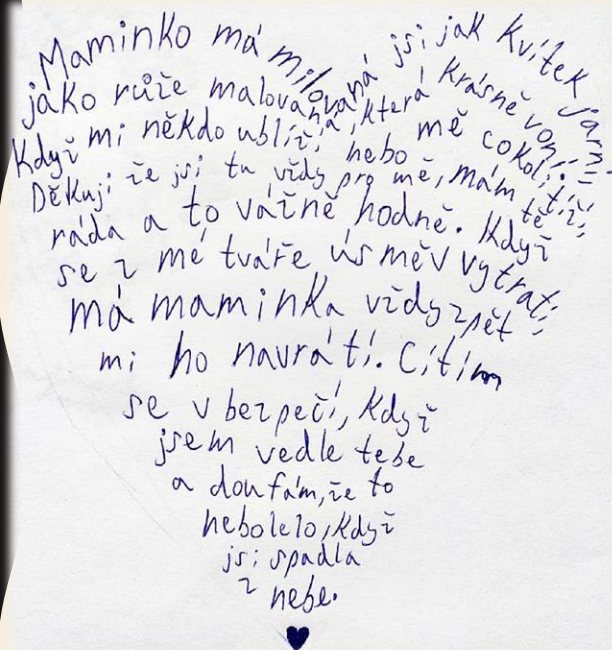 Maminko má milovaná jsi jak kvítek jarní
jako růže malovaná, která krásně voní.
Když mi někdo ublíží, nebo mě cokoli tíží,
Děkuji že jsi tu vždy pro mě, mám tě
ráda a to vážně hodně. Když
se z mé tváře úsměv vytratí,
má maminka vždy zpět
mi ho navrátí. Cítím
se v bezpečí, když
jsem vedle tebe
a doufám, že to
nebolelo, když
jsi spadla
z nebe.